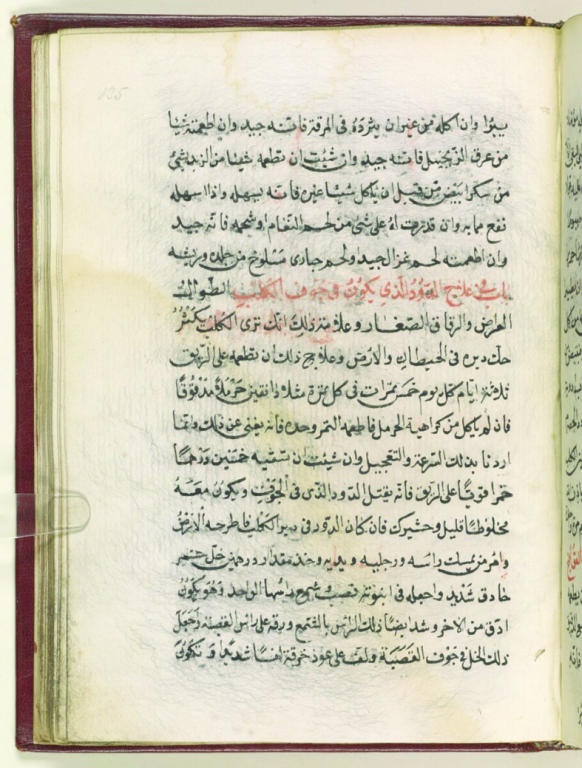 135
يبرا وان اكله من غير ان يثرده فى المرقة فانه جيد وان اطعمته شيا
من عرق الزنجبيل فانه جيد وان شيت ان تطعمه شيئا من الزبد شى
من سكر ابيض من قبل ان ياكل شيئا غيره فانه يسهله واذا اسهله
نفع مما به وان قدرت له على شى من لحم النعام او شحمه فانه جيد
وان اطعمته لحم غزال جيد او لحم حبارى مسلوخ من جلده وريشه
باب فى علاج الدود الذى يكون فى جوف الكلب الطوال
العراض والرقاق الصغار وعلامة ذلك انك ترى الكلب يكثر
حك دبره فى الحيطان والارض وعلاج ذلك ان تطعمه على الريق
ثلاثة ايام كل يوم خمس تمرات فى كل تمرة مثلا دانقين حرملا مدقوقا
فان لم ياكل من كراهية الحرمل فاطعمه التمر وحده فانه يغنى عن ذلك وانما
اردنا بذلك السرعة والتعجيل وان شيت ان تسقيه خمسين درهما
خمرا قويا على الريق فانه يقتل الدود الذى فى الجوف ويكون معه
مخلوطا قليل وحشيرك فان كان الدود فى دبر الكلب فاطرحه الارض
وامر من يمسك راسه ورجليه ويديه وخذ مقدار درهمين خل خمر
حاذق شديد واجعله فى انبوبة قصب وشمع راسها الواحد وهو يكون
ادق من الاخر وشد ايضا ذلك الراس بالشمع ورقه على راس القصبة واجعل
ذلك الخل فى جوف القصبة ولف على عود خرقة لفا شديدا وتكون